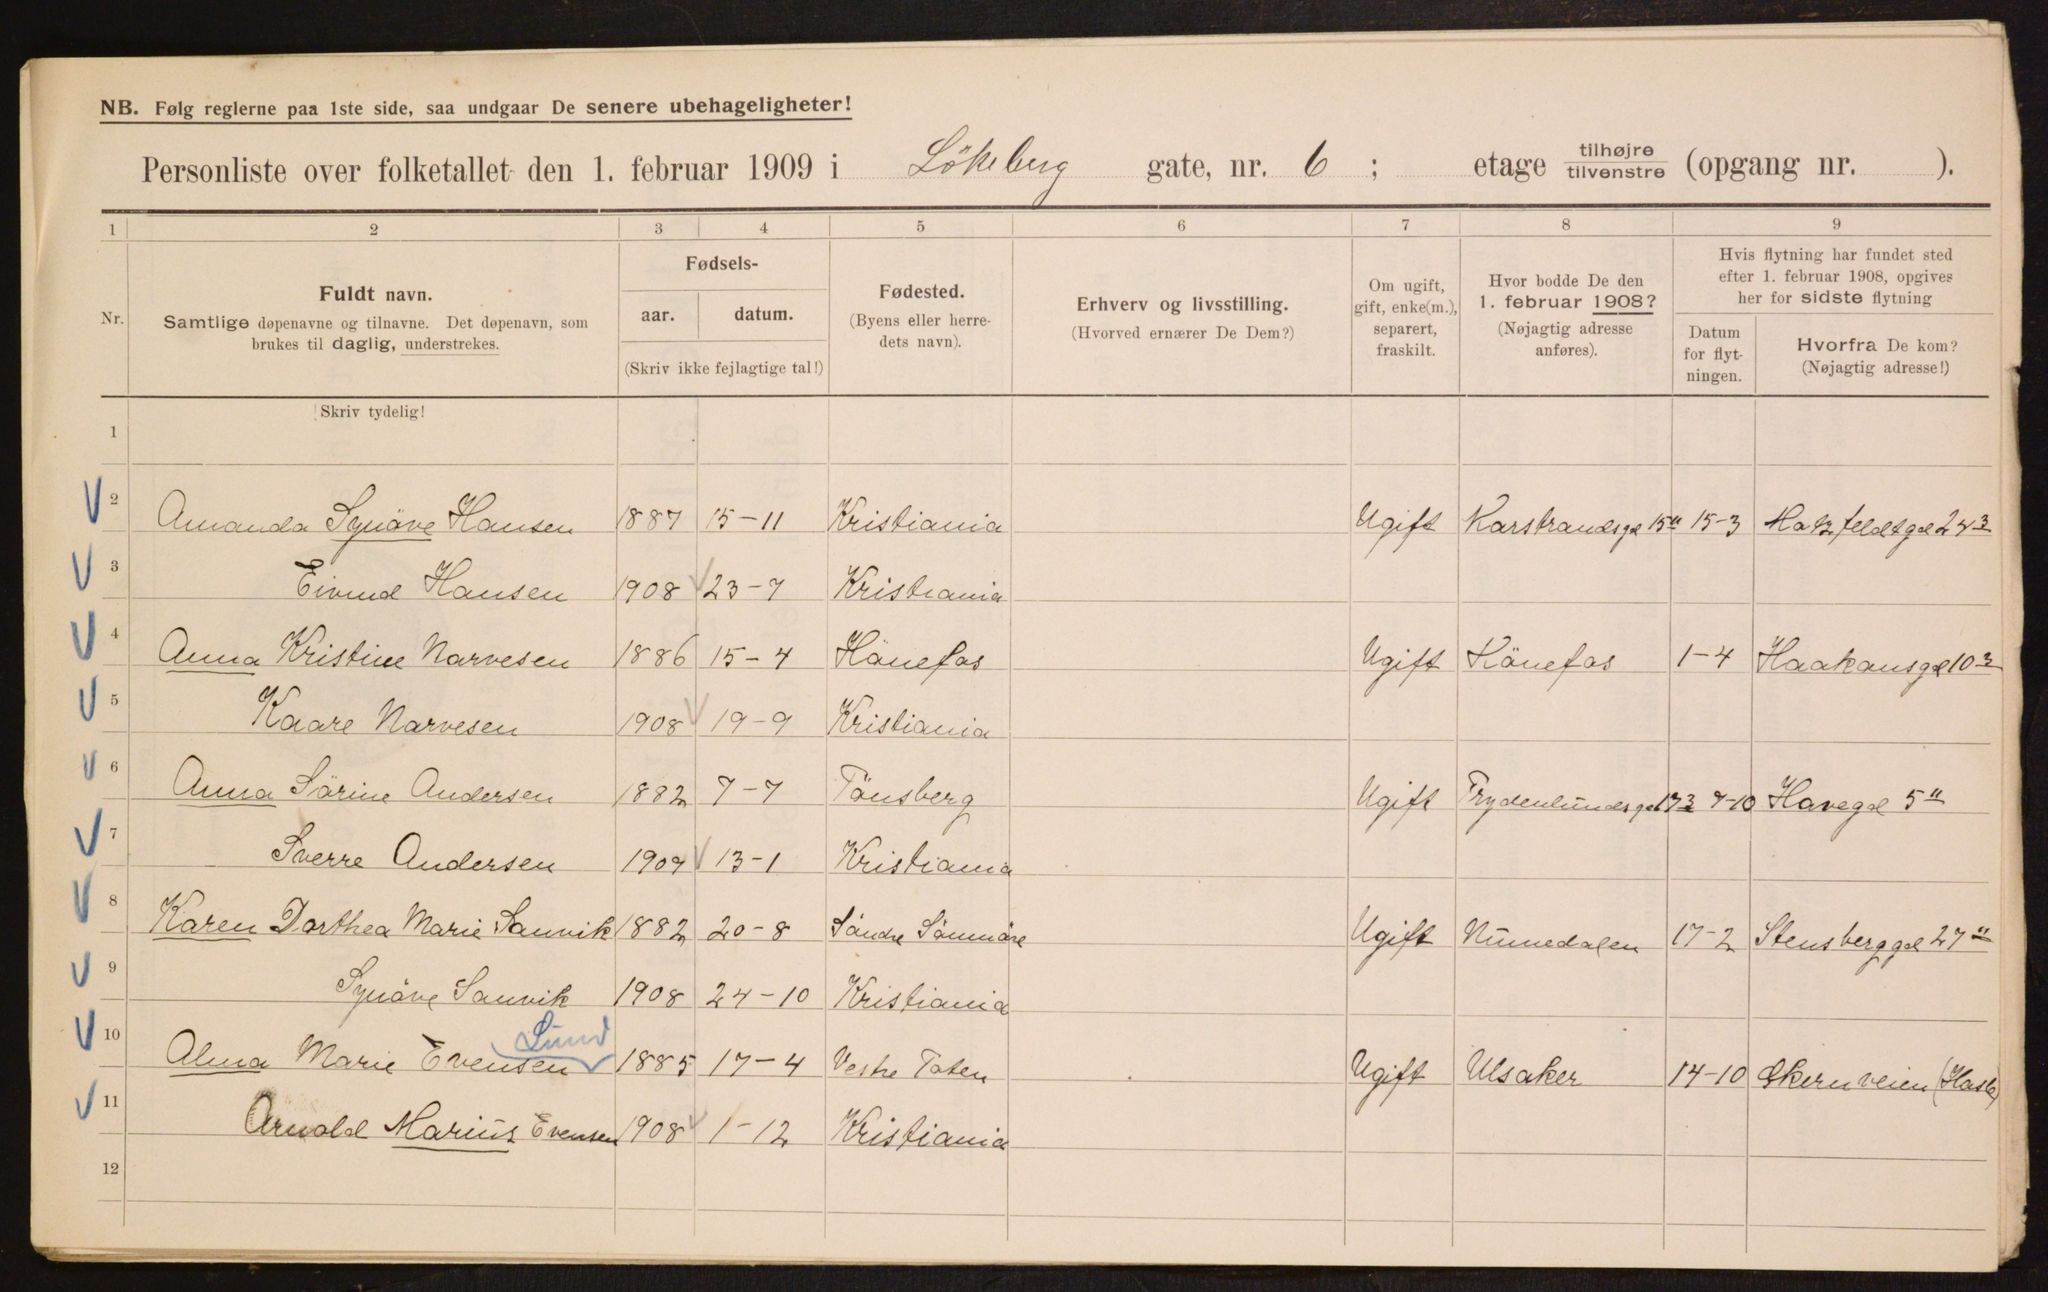 NB. Følg reglerne paa 1ste side, saa undgaar De senere ubehageligheter!
Personliste over folketallet den 1. februar 1909 i Lökeberg gate, nr. 6 ; etage tilhøjre tilvenstre (opgang nr. ).
1 2 3 4 5 6 7 8 9
Nr.
Fuldt navn.
Samtlige døpenavne og tilnavne. Det døpenavn, som
brukes til daglig, understrekes.
Fødsels-
aar. datum.
(Skriv ikke fejlagtige tal!)
Fødested.
(Byens eller herre-
dets navn).
Erhverv og livsstilling.
(Hvorved ernærer De Dem?)
Om ugift,
gift, enke(m.),
separert,
fraskilt.
Hvor bodde De den
1. februar 1908?
(Nøjagtig adresse
anføres).
Hvis flytning har fundet sted
efter 1. februar 1908, opgives
her for sidste flytning
Datum
for flyt-
ningen.
Hvorfra De kom?
(Nøjagtig adresse!)
Skriv tydelig!
1
2 Amanda Synöve Hansen 1887 15-11 Kristiania Ugift Karstrandsgd 15 II 15-3 Hatzfeldtgd 24 3
3 Eivind Hansen 1908 23-7 Kristiania
4 Anna Kristine Narvesen 1886 15-4 Hönefos Ugift Hönefos 1-4 Haakonsgd 10 3
5 Kaare Narvesen 1908 19-9 Kristiania
6 Anna Sörine Andersen 1882 7-7 Tönsberg Ugift Frydenlundsgd 17 3 7-10 Havegd 5 II
7 Sverre Andersen 1907 13-1 Kristiania
8 Karen Dorthea Marie Sanvik 1882 20-8 Söndre Sönmöre Ugift Numedalen 17-2 Stensberggd 27 II
9 Synöve Sanvik 1908 24-10 Kristiania
Lund
10 Alma Marie Evensen 1885 17-4 Vestre Toten Ugift Ulsaker 14-10 Økernveien (Hasle)
11 Arnold Marius Evensen 1908 1-12 Kristiania
12